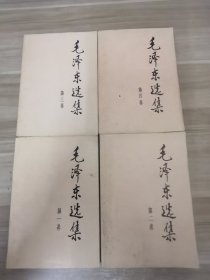 毛泽东选集
第三卷
毛泽东选集
第四卷
毛泽东选集
第一卷
毛泽东选集
第二卷